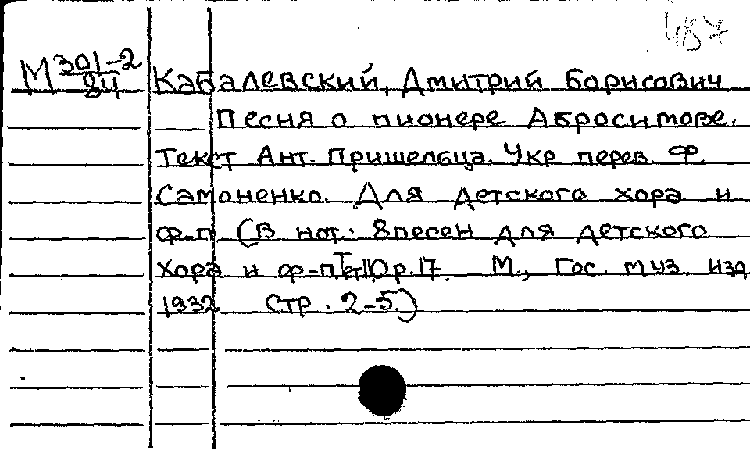 487
М 301-2/84 Кабалевский, Дмитрий Борисович
Песня о пионере Абросимове.
Текст Ант. Пришельца. Укр перев. Ф.
Самоненко. Для детского хора и
ф-п (В нот.: 8 песен для детского
хора и ф-п Тет.II Op.17. М., Гос. муз. изд
1932 стр. 2-5.)